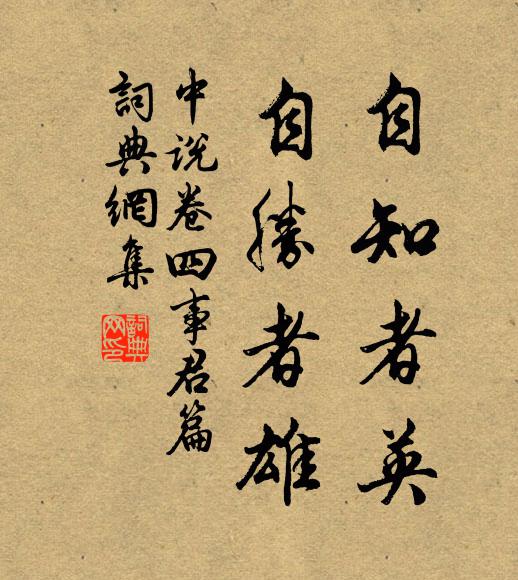 自知者英
自勝者雄
中说卷四事君篇
詞典網集
詞典
网印